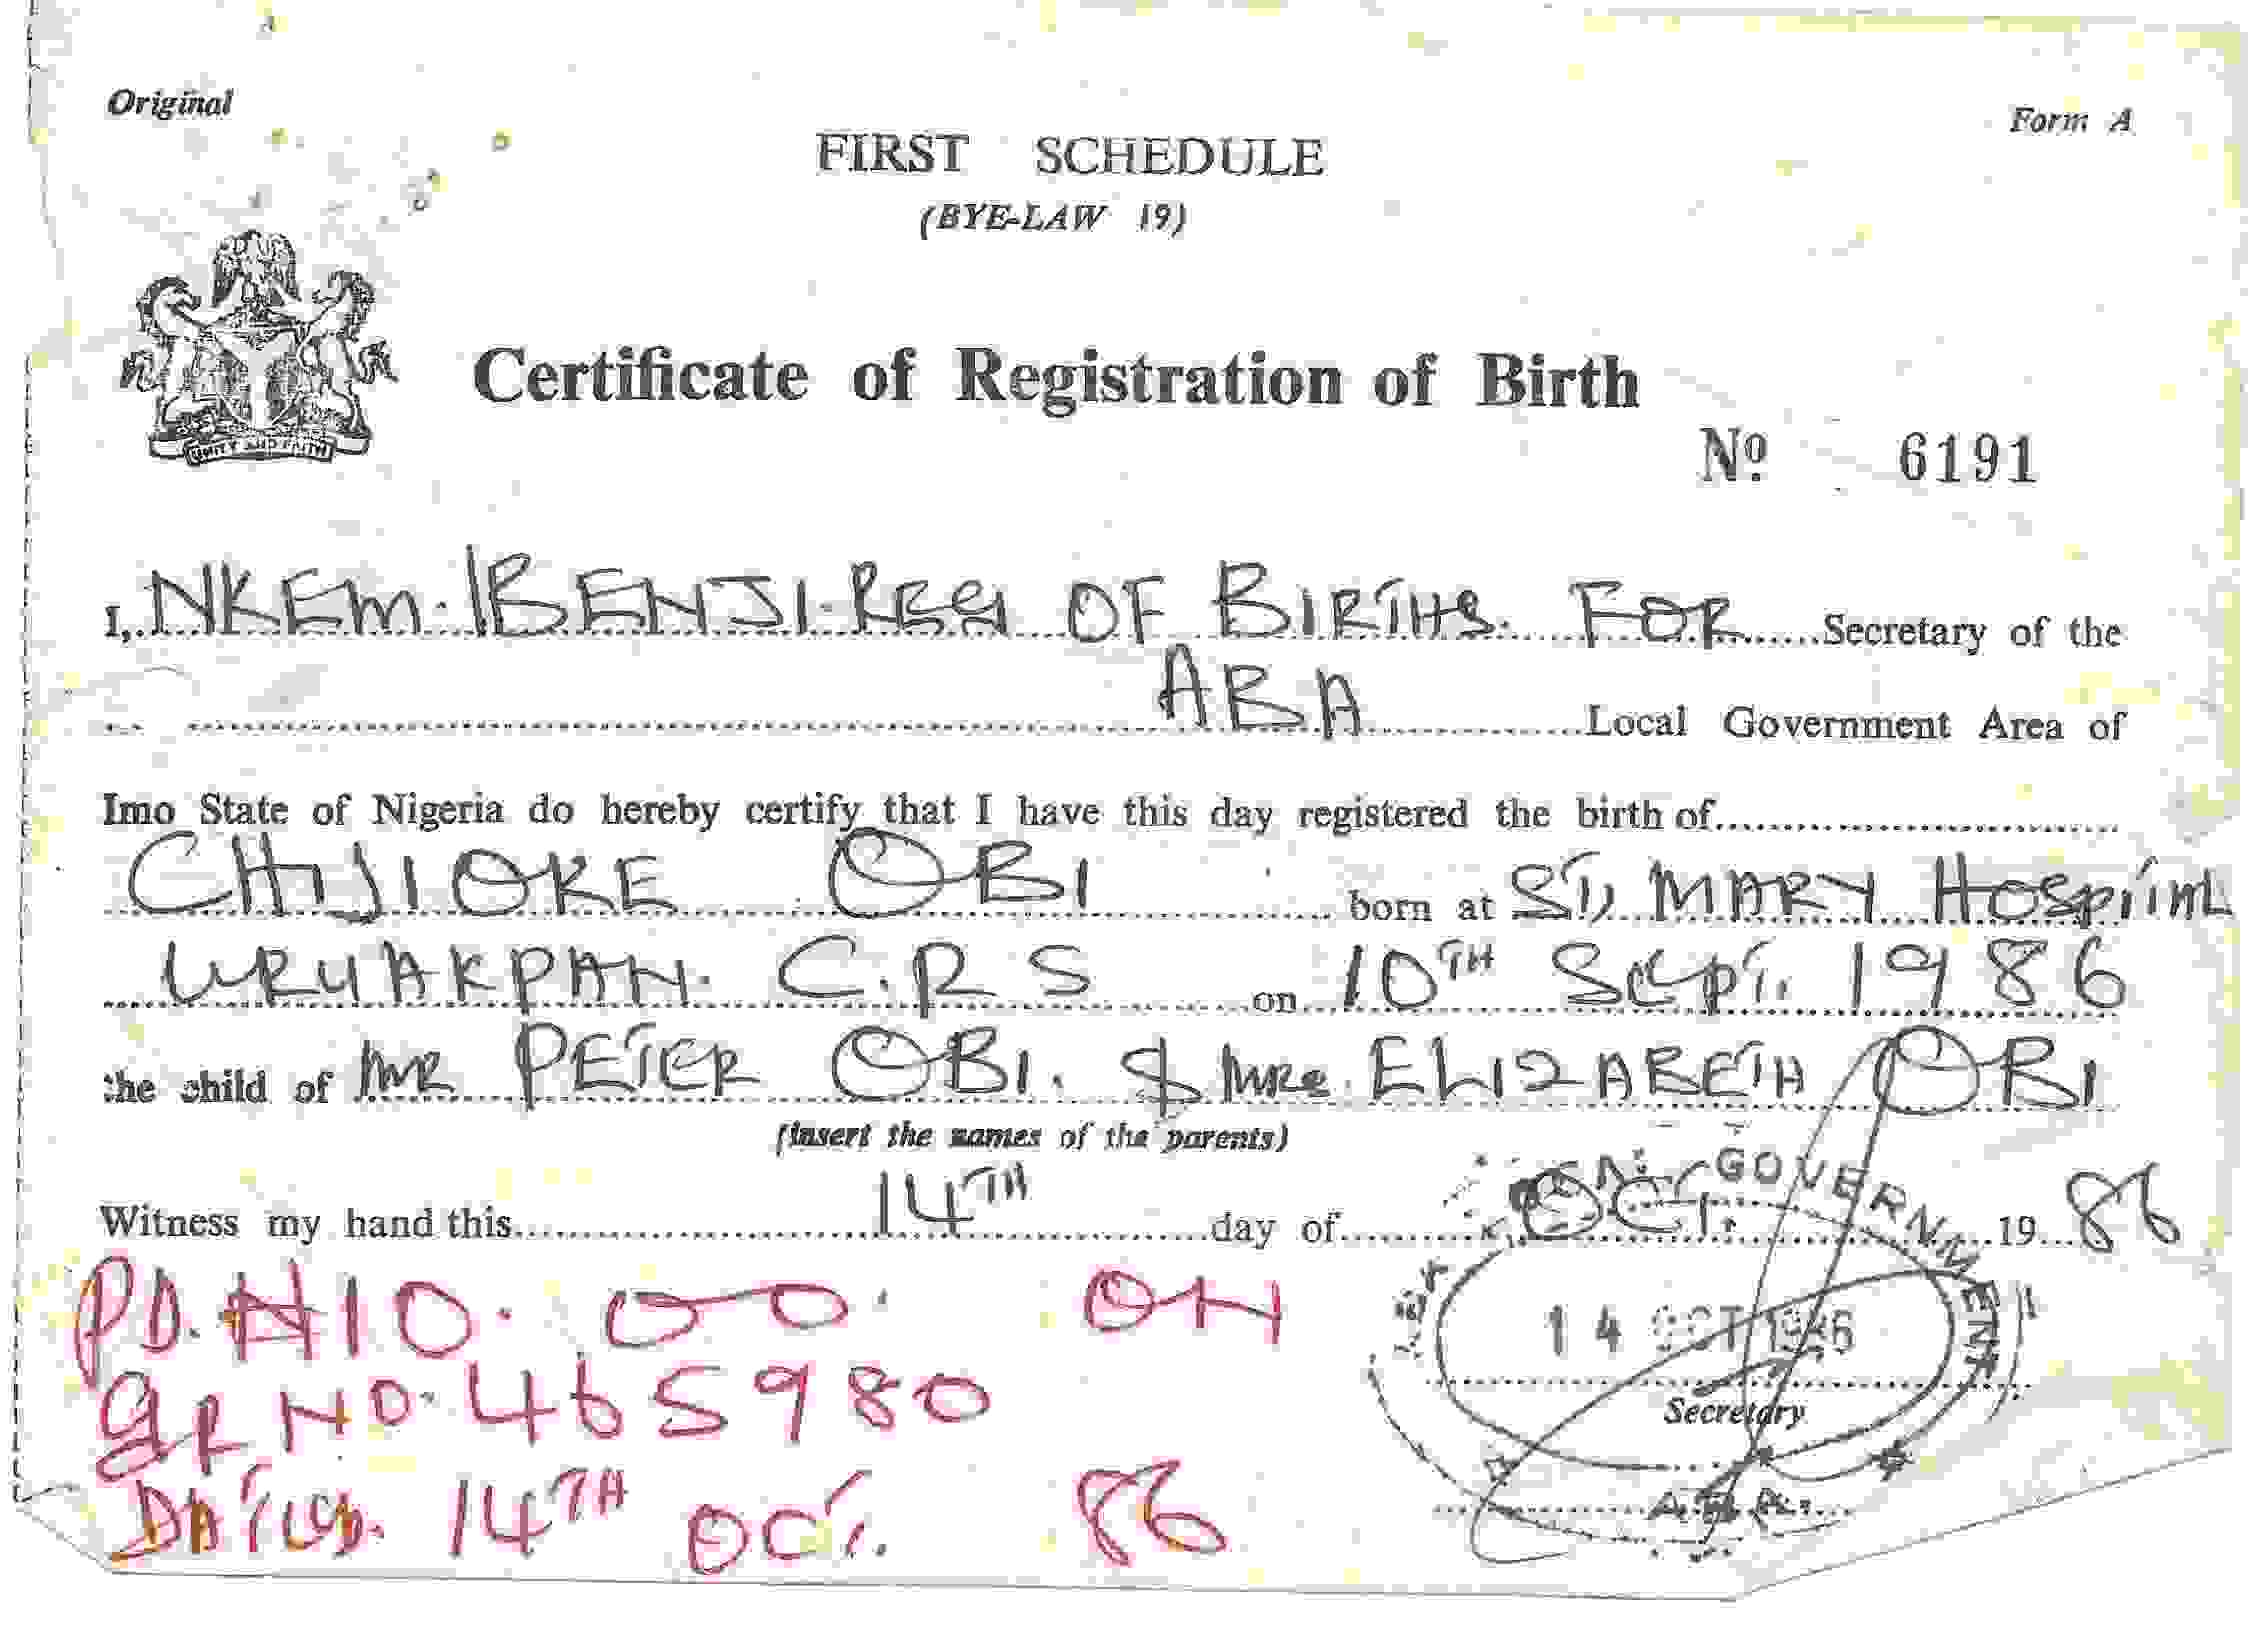 Original
Form A
FIRST SCHEDULE
(BYE-LAW 19)
UNITY AND FAITH
Certificate of Registration of Birth
Nº 6191
I, NKEM. BENJI. REG OF BIRTHS. FOR Secretary of the
ABA Local Government Area of
Imo State of Nigeria do hereby certify that I have this day registered the birth of
CHIJIOKE OBI born at ST, MARY HOSPITAL
URUAKPAN. C.R.S on 10TH Sept. 1986
the child of MR PETER OBI. & MRS. ELIZABETH OBI
(insert the names of the parents)
Witness my hand this 14TH day of OCT. 19 86
GOVERNMENT
PD. ₦10. 00. ON
14 OCT 1986
GR NO. 465980
Secretary
DATED. 14TH OCT. 86